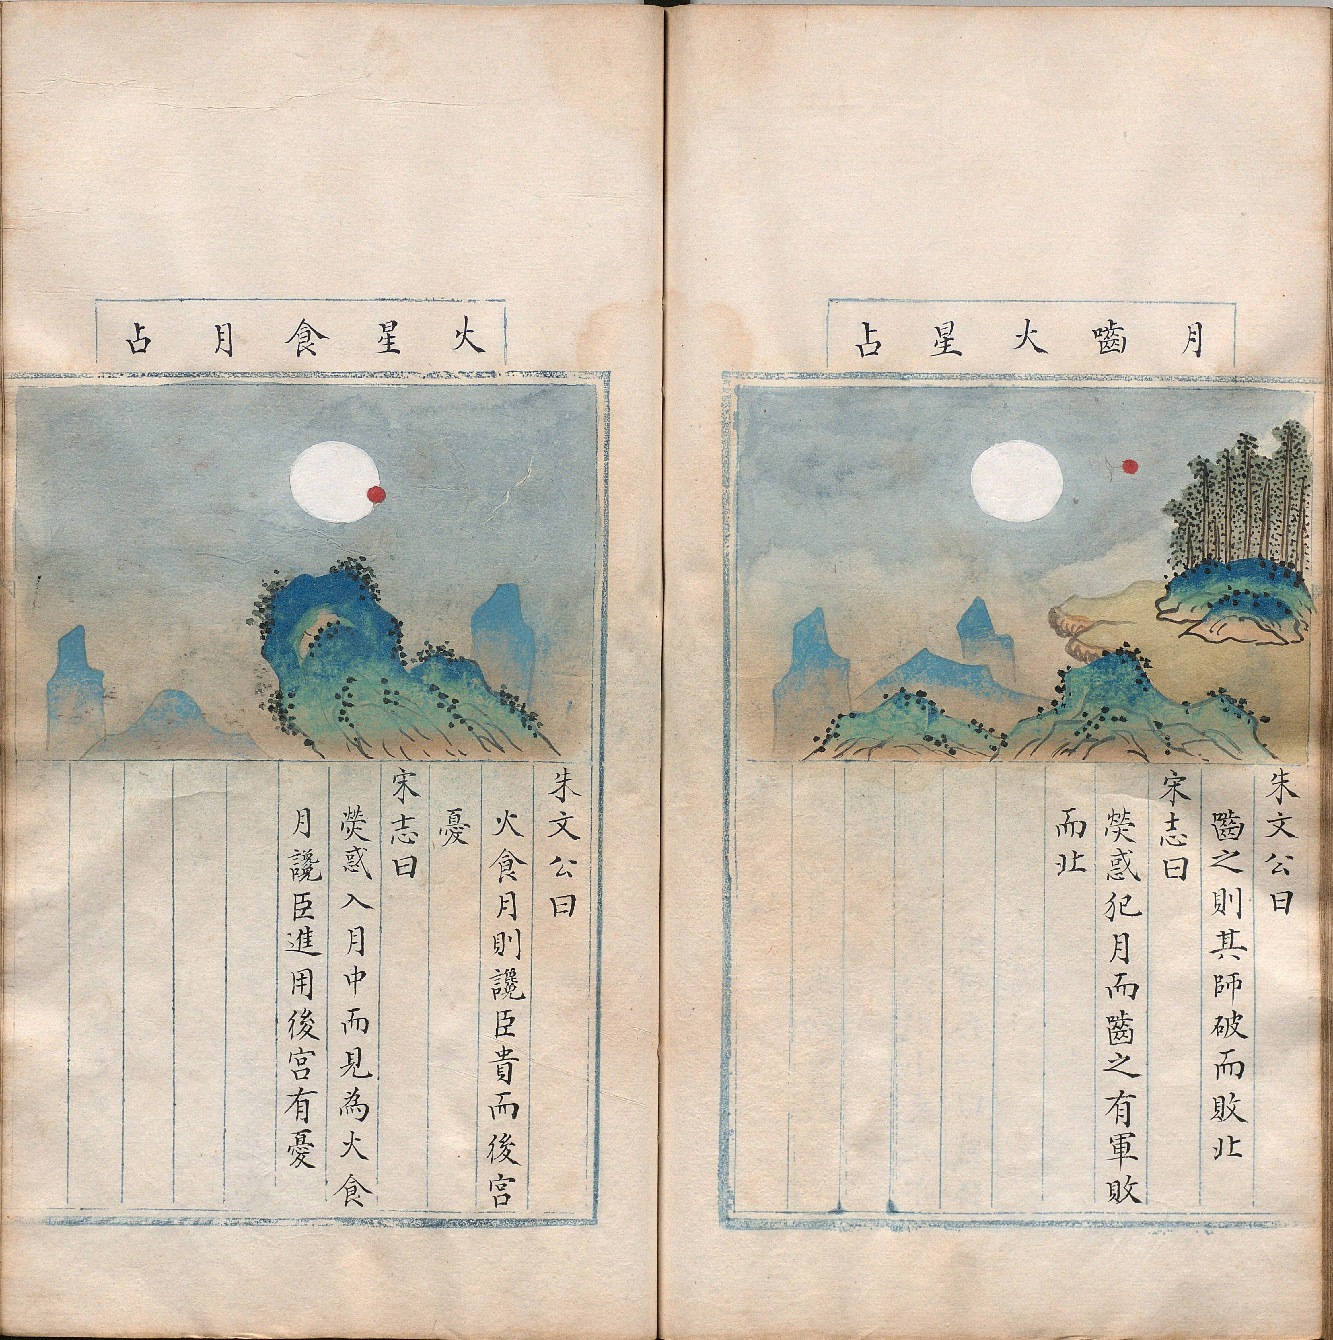 月嚙火星占
朱文公曰
嚙之則其師破而敗北
宋志曰
熒惑犯月而嚙之有軍敗
而北
火星食月占
朱文公曰
火食月則讒臣貴而後宮
憂
宋志曰
熒惑入月中而見為火食
月讒臣進用後宮有憂